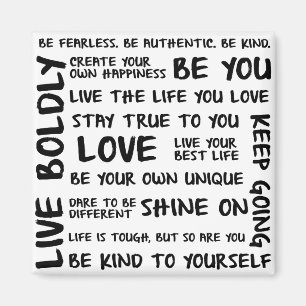 BE FEARLESS. BE AUTHENTIC. BE KIND.
LIVE BOLDLY
CREATE YOUR
OWN HAPPINESS
BE YOU
LIVE THE LIFE YOU LOVE
STAY TRUE TO YOU
KEEP GOING
LOVE
LIVE YOUR
BEST LIFE
BE YOUR OWN UNIQUE
DARE TO BE
DIFFERENT
SHINE ON
LIFE IS TOUGH, BUT SO ARE YOU
BE KIND TO YOURSELF